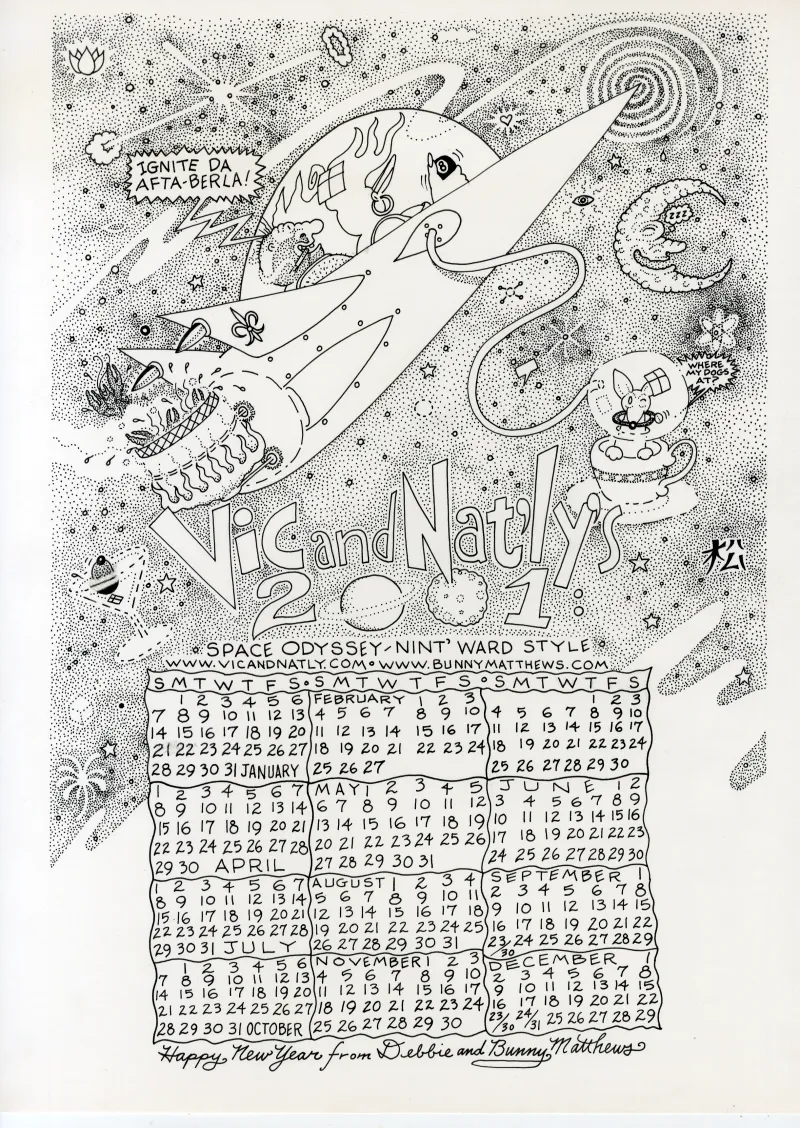 IGNITE DA
AFTA-BERLA!
8
ZZZ
WHERE
MY DOGS
AT?
Vic and Nat'ly's
松
2001:
SPACE ODYSSEY-NINT' WARD STYLE
WWW.VICANDNATLY.COM • WWW.BUNNYMATTHEWS.COM
S M T W T F S • S M T W T F S • S M T W T F S
1 2 3 4 5 6
7 8 9 10 11 12 13
14 15 16 17 18 19 20
21 22 23 24 25 26 27
28 29 30 31 JANUARY
FEBRUARY 1 2 3
4 5 6 7 8 9 10
11 12 13 14 15 16 17
18 19 20 21 22 23 24
25 26 27
1 2 3
4 5 6 7 8 9 10
11 12 13 14 15 16 17
18 19 20 21 22 23 24
25 26 27 28 29 30
1 2 3 4 5 6 7
8 9 10 11 12 13 14
15 16 17 18 19 20 21
22 23 24 25 26 27 28
29 30 APRIL
MAY 1 2 3 4 5
6 7 8 9 10 11 12
13 14 15 16 17 18 19
20 21 22 23 24 25 26
27 28 29 30 31
JUNE 1 2
3 4 5 6 7 8 9
10 11 12 13 14 15 16
17 18 19 20 21 22 23
24 25 26 27 28 29 30
1 2 3 4 5 6 7
8 9 10 11 12 13 14
15 16 17 18 19 20 21
22 23 24 25 26 27 28
29 30 31 JULY
AUGUST 1 2 3 4
5 6 7 8 9 10 11
12 13 14 15 16 17 18
19 20 21 22 23 24 25
26 27 28 29 30 31
SEPTEMBER 1
2 3 4 5 6 7 8
9 10 11 12 13 14 15
16 17 18 19 20 21 22
23/30 24 25 26 27 28 29
1 2 3 4 5 6
7 8 9 10 11 12 13
14 15 16 17 18 19 20
21 22 23 24 25 26 27
28 29 30 31 OCTOBER
NOVEMBER 1 2 3
4 5 6 7 8 9 10
11 12 13 14 15 16 17
18 19 20 21 22 23 24
25 26 27 28 29 30
DECEMBER 1
2 3 4 5 6 7 8
9 10 11 12 13 14 15
16 17 18 19 20 21 22
23/30 24/31 25 26 27 28 29
Happy New Year from Debbie and Bunny Matthews